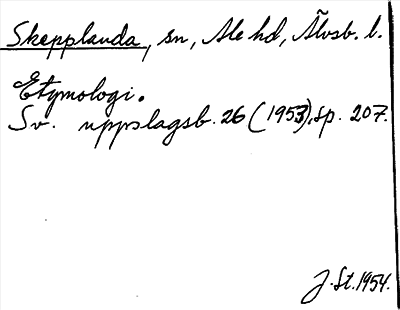 Skepplanda, sn, Ale hd, Älvsb. l.
Etymologi.
Sv. uppslagsb. 26 (1953), sp. 207.
J. St. 1954.